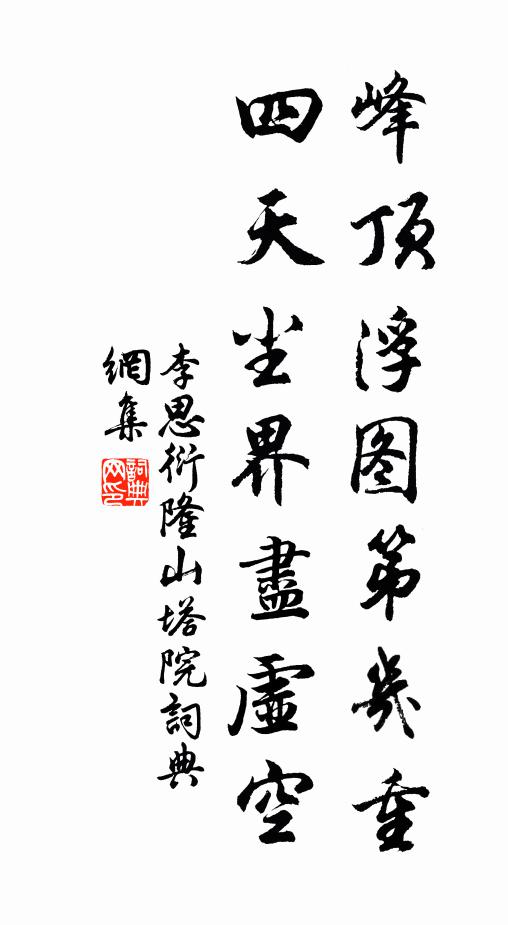 峰顶浮图第幾重
四天尘界盡虚空
李思衍隆山塔院詞典
網集
詞典
网印